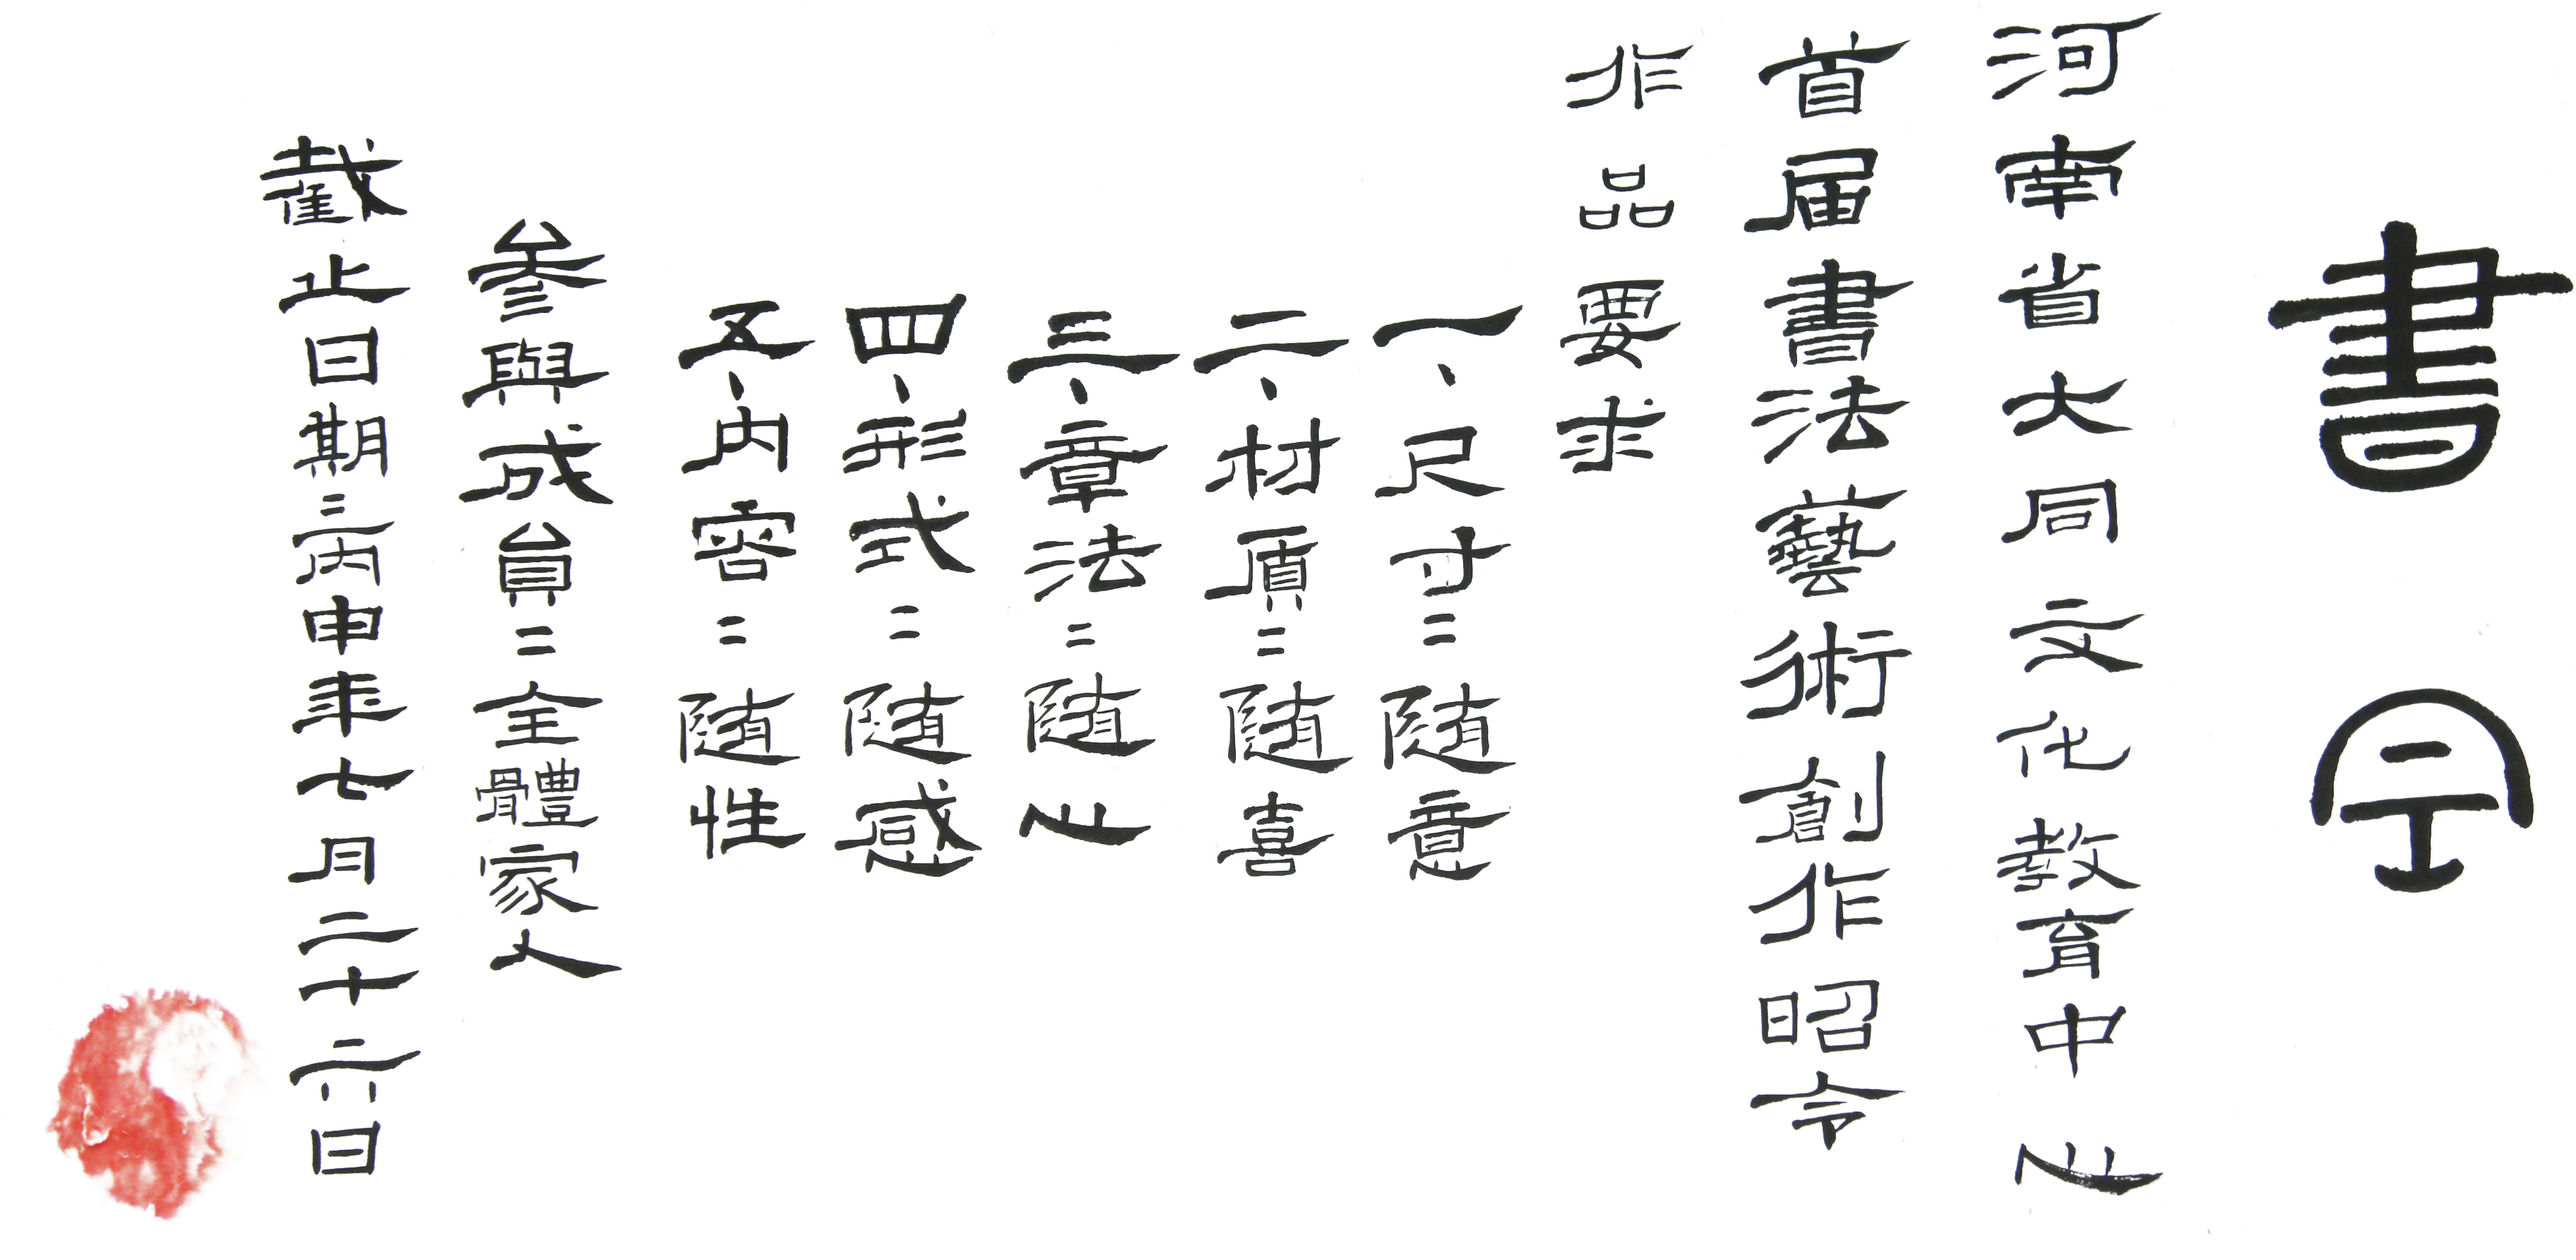 書
河南省大同文化教育中心
首届書法藝術創作昭令
作品要求
一、尺寸：随意
二、材質：随喜
三、章法：随心
四、形式：随感
五、内容：随性
参與成員：全體家人
截止日期：丙申年七月二十六日